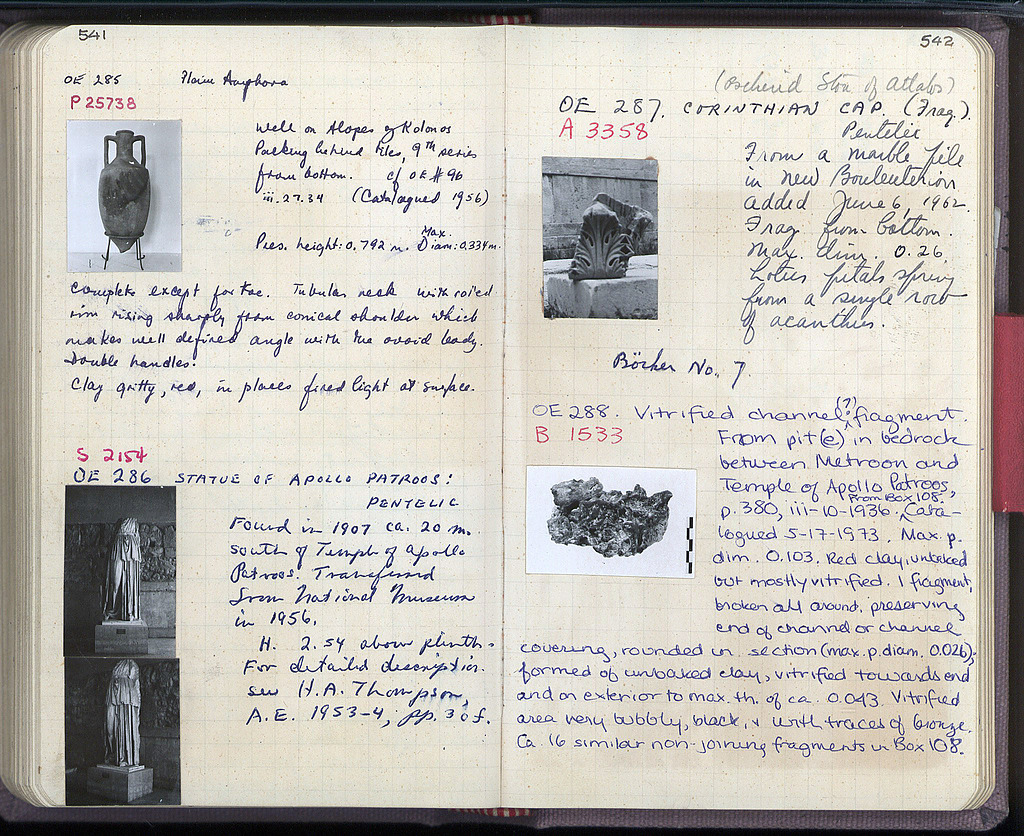 541
OE 285 Plain Amphora
P 25738
Well on slopes of Kolonos
Packing behind tiles, 9th series
from bottom. cf OE # 96
iii.27.34 (Catalogued 1956)
Pres. height: 0.792 m. Max. Diam: 0.334 m.
Complete except for toe. Tubular neck with rolled
rim rising sharply from conical shoulder which
makes well defined angle with the ovoid body.
Double handles.
Clay gritty, red, in places fired light at surface.
S 2154
OE 286 STATUE OF APOLLO PATROOS:
PENTELIC
Found in 1907 ca. 20 m.
south of Temple of Apollo
Patroos. Transferred
from National Museum
in 1956.
H. 2.54 above plinth.
For detailed description
see H.A. Thompson,
A.E. 1953-4, pp. 30 f.
542
(Behind Stoa of Attalos)
OE 287. CORINTHIAN CAP. (Frag.)
A 3358
Pentelic
From a marble pile
in new Bouleuterion
added June 6, 1962.
Frag. from bottom.
Max. dim. 0.26.
Lotus petals spring
from a single row
of acanthus.
No. 7
OE 288. Vitrified channel (?) fragment.
B 1533
From pit (e) in bedrock
between Metroon and
Temple of Apollo Patroos,
From Box 108.
p. 380, iii-10-1936. Cata-
logued 5-17-1973. Max. p.
dim. 0.103. Red clay, unbaked
but mostly vitrified. 1 fragment,
broken all around, preserving
end of channel or channel
covering, rounded in section (max. p. diam. 0.026);
formed of unbaked clay, vitrified towards end
and on exterior to max. th. of ca. 0.043. Vitrified
area very bubbly, black, & with traces of bronze.
Ca. 16 similar non-joining fragments in Box 108.